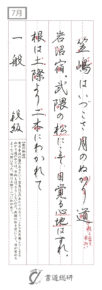 7月
笠嶋はいづこさ月のぬかり道
岩沼宿、武隈の松にこそ、目覚る心地はすれ。
根は土際より二木にわかれて
一般
段級
書道総研